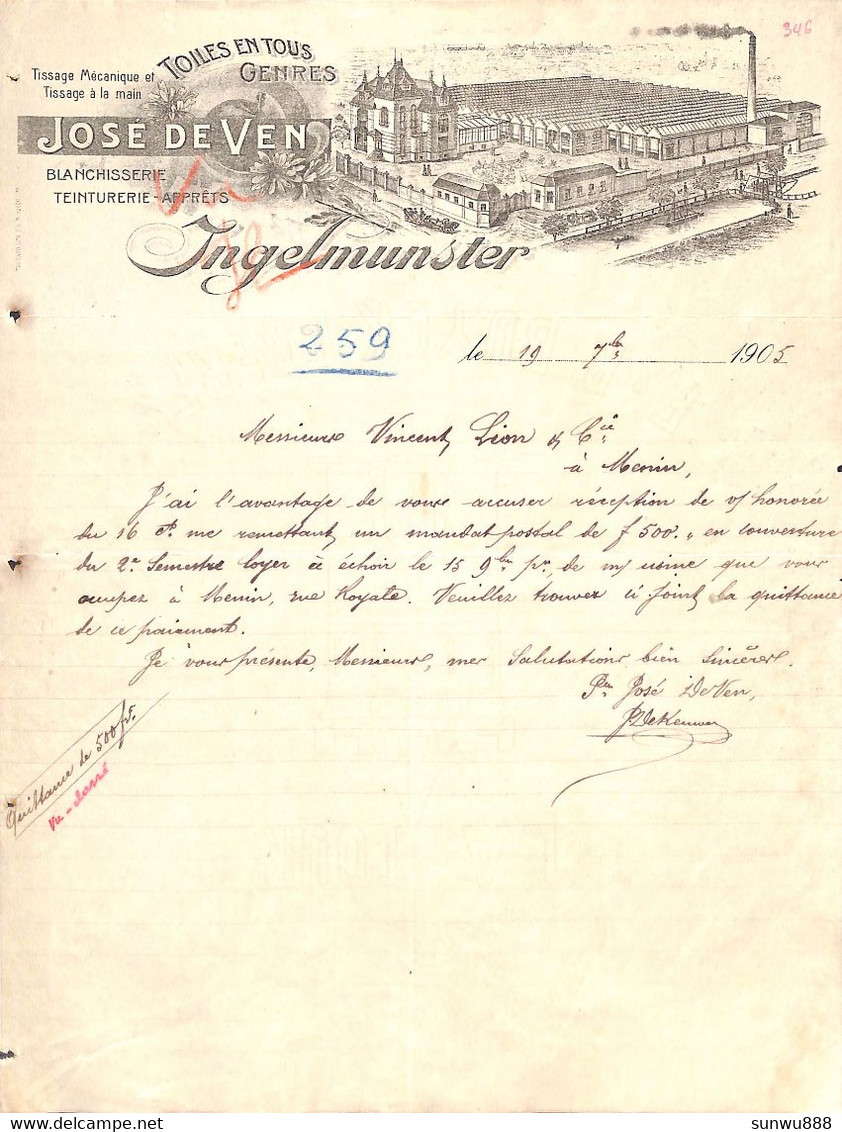 346
TOILES EN TOUS
GENRES
Tissage Mécanique et
Tissage à la main
JOSÉ DE VEN
BLANCHISSERIE
TEINTURERIE-APPRÊTS
Ingelmunster
259
le 19 7bre 1905
Messieurs Vincent, Lion & Cie
à Menin,
J'ai l'avantage de vous accuser réception de v/ honorée
du 16 Ct. me remettant un mandat postal de f 500. " en couverture
du 2e Semestre loyer à échoir le 15 9bre pn, de m/ usine que vous
occupez à Menin, rue Royale. Veuillez trouver ci joint la quittance
de ce paiement.
Je vous présente, Messieurs, mes Salutations bien sincères.
Pon José DeVen,
Quittance de 500 fr.
sunwu888
www.delcampe.net